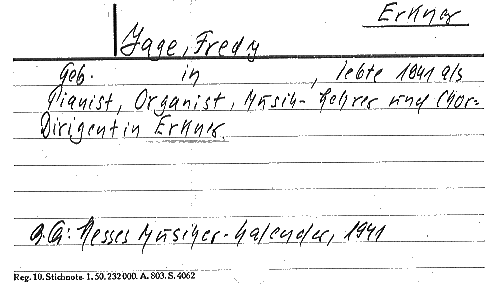 Erkner
Jage, Fredy
Geb. in , lebte 1941 als
Pianist, Organist, Musik-Lehrer und Chor-
Dirigent in Erkner.
Q.: Hesses Musiker-Kalender, 1941
Reg. 10. Stichnote. 1. 50. 232 000. A. 803. S. 4062